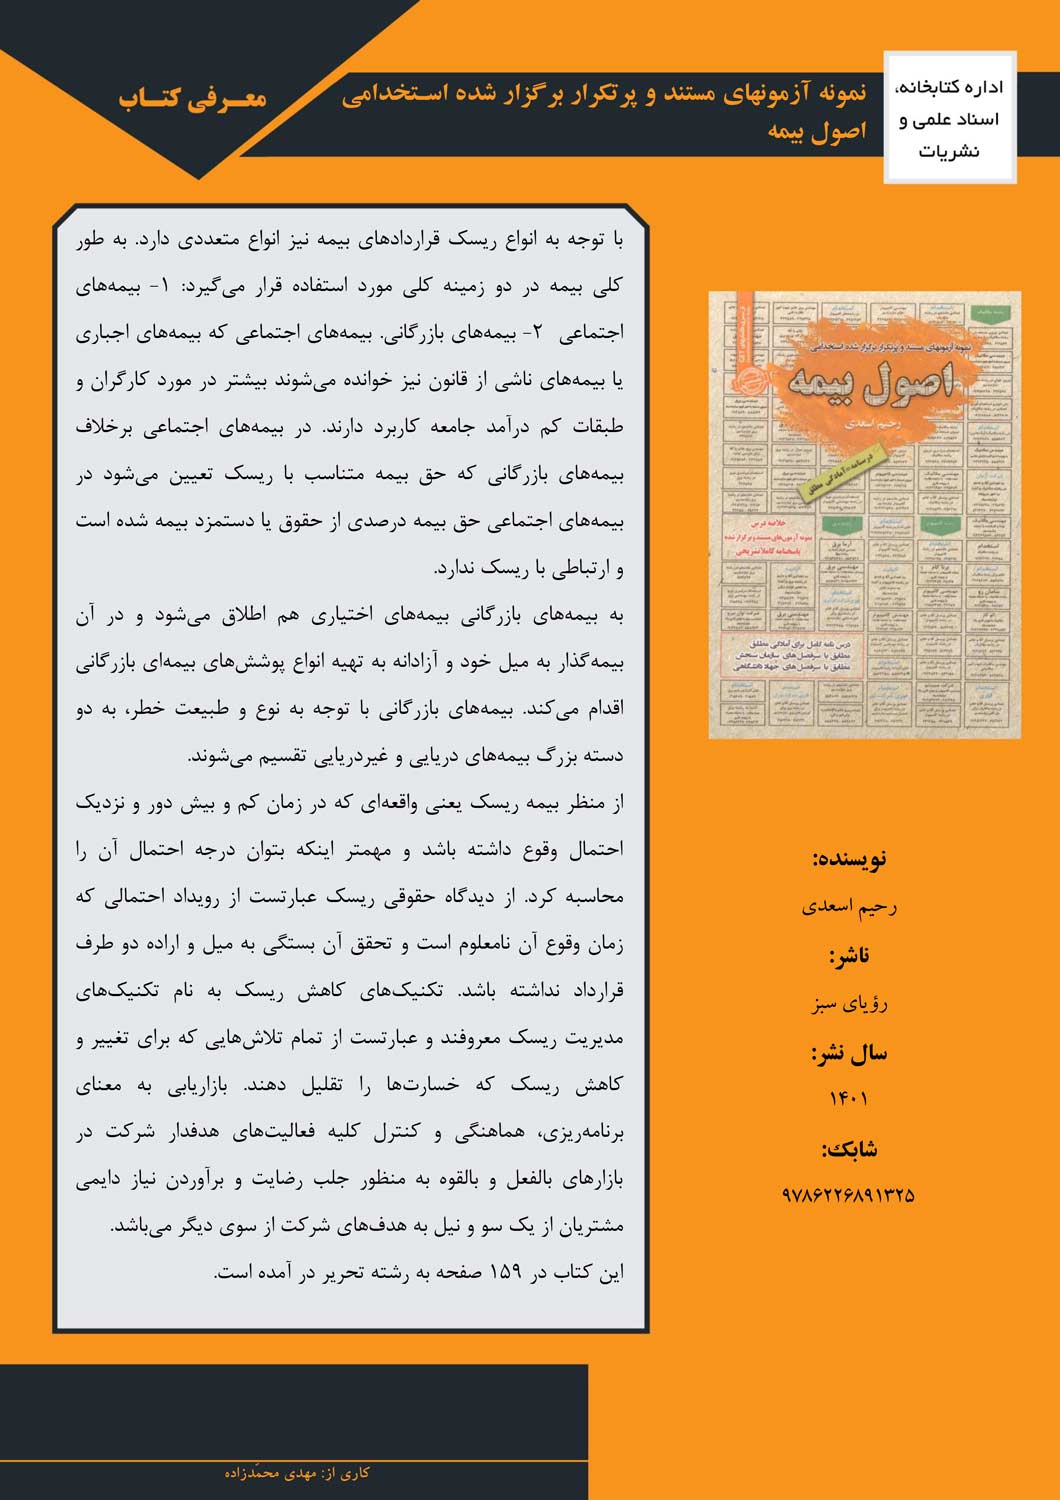 اداره کتابخانه،
اسناد علمی و
نشریات
نمونه آزمونهای مستند و پرتکرار برگزار شده استخدامی
اصول بیمه
معرفی کتاب
با توجه به انواع ریسک قراردادهای بیمه نیز انواع متعددی دارد. به طور
کلی بیمه در دو زمینه کلی مورد استفاده قرار می‌گیرد: ۱- بیمه‌های
اجتماعی ۲- بیمه‌های بازرگانی. بیمه‌های اجتماعی که بیمه‌های اجباری
یا بیمه‌های ناشی از قانون نیز خوانده می‌شوند بیشتر در مورد کارگران و
طبقات کم درآمد جامعه کاربرد دارند. در بیمه‌های اجتماعی برخلاف
بیمه‌های بازرگانی که حق بیمه متناسب با ریسک تعیین می‌شود در
بیمه‌های اجتماعی حق بیمه درصدی از حقوق یا دستمزد بیمه شده است
و ارتباطی با ریسک ندارد.
به بیمه‌های بازرگانی بیمه‌های اختیاری هم اطلاق می‌شود و در آن
بیمه‌گذار به میل خود و آزادانه به تهیه انواع پوشش‌های بیمه‌ای بازرگانی
اقدام می‌کند. بیمه‌های بازرگانی با توجه به نوع و طبیعت خطر، به دو
دسته بزرگ بیمه‌های دریایی و غیردریایی تقسیم می‌شوند.
از منظر بیمه ریسک یعنی واقعه‌ای که در زمان کم و بیش دور و نزدیک
احتمال وقوع داشته باشد و مهمتر اینکه بتوان درجه احتمال آن را
محاسبه کرد. از دیدگاه حقوقی ریسک عبارتست از رویداد احتمالی که
زمان وقوع آن نامعلوم است و تحقق آن بستگی به میل و اراده دو طرف
قرارداد نداشته باشد. تکنیک‌های کاهش ریسک به نام تکنیک‌های
مدیریت ریسک معروفند و عبارتست از تمام تلاش‌هایی که برای تغییر و
کاهش ریسک که خسارت‌ها را تقلیل دهند. بازاریابی به معنای
برنامه‌ریزی، هماهنگی و کنترل کلیه فعالیت‌های هدفدار شرکت در
بازارهای بالفعل و بالقوه به منظور جلب رضایت و برآوردن نیاز دایمی
مشتریان از یک سو و نیل به هدف‌های شرکت از سوی دیگر می‌باشد.
این کتاب در ۱۵۹ صفحه به رشته تحریر در آمده است.
نمونه آزمونهای مستند و پرتکرار برگزار شده استخدامی
اصول بیمه
رحیم اسعدی
درسنامه+آمادگی مطلق
خلاصه درس
نمونه آزمون‌های مستند و برگزار شده
پاسخنامه کاملا تشریحی
درس نامه کامل برای آمادگی مطلق
مطابق با سرفصل های سازمان سنجش
مطابق با سرفصل های جهاد دانشگاهی
نویسنده:
رحیم اسعدی
ناشر:
رؤیای سبز
سال نشر:
۱۴۰۱
شابک:
۹۷۸۶۲۲۶۸۹۱۳۲۵
کاری از: مهدی محمّدزاده